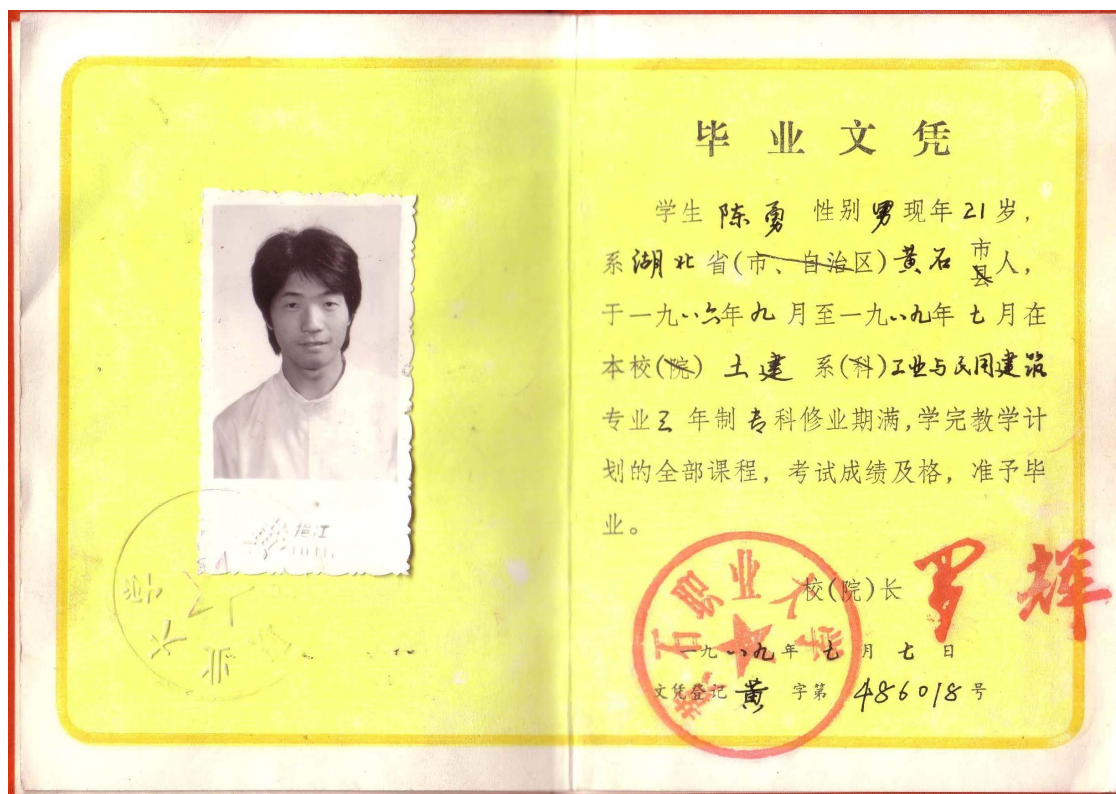 毕业文凭
学生 陈勇 性别 男 现年 21 岁,
系 湖北 省(市、自治区) 黄石 市县人,
于一九八六年九月至一九八九年七月在
本校(院) 土建 系(科) 工业与民用建筑
专业 三 年制 专 科修业期满,学完教学计
划的全部课程, 考试成绩及格, 准予毕
业。
校(院)长 罗辉
一九八九年七月七日
文凭登记 黄 字第 486018 号
黄石职业大学